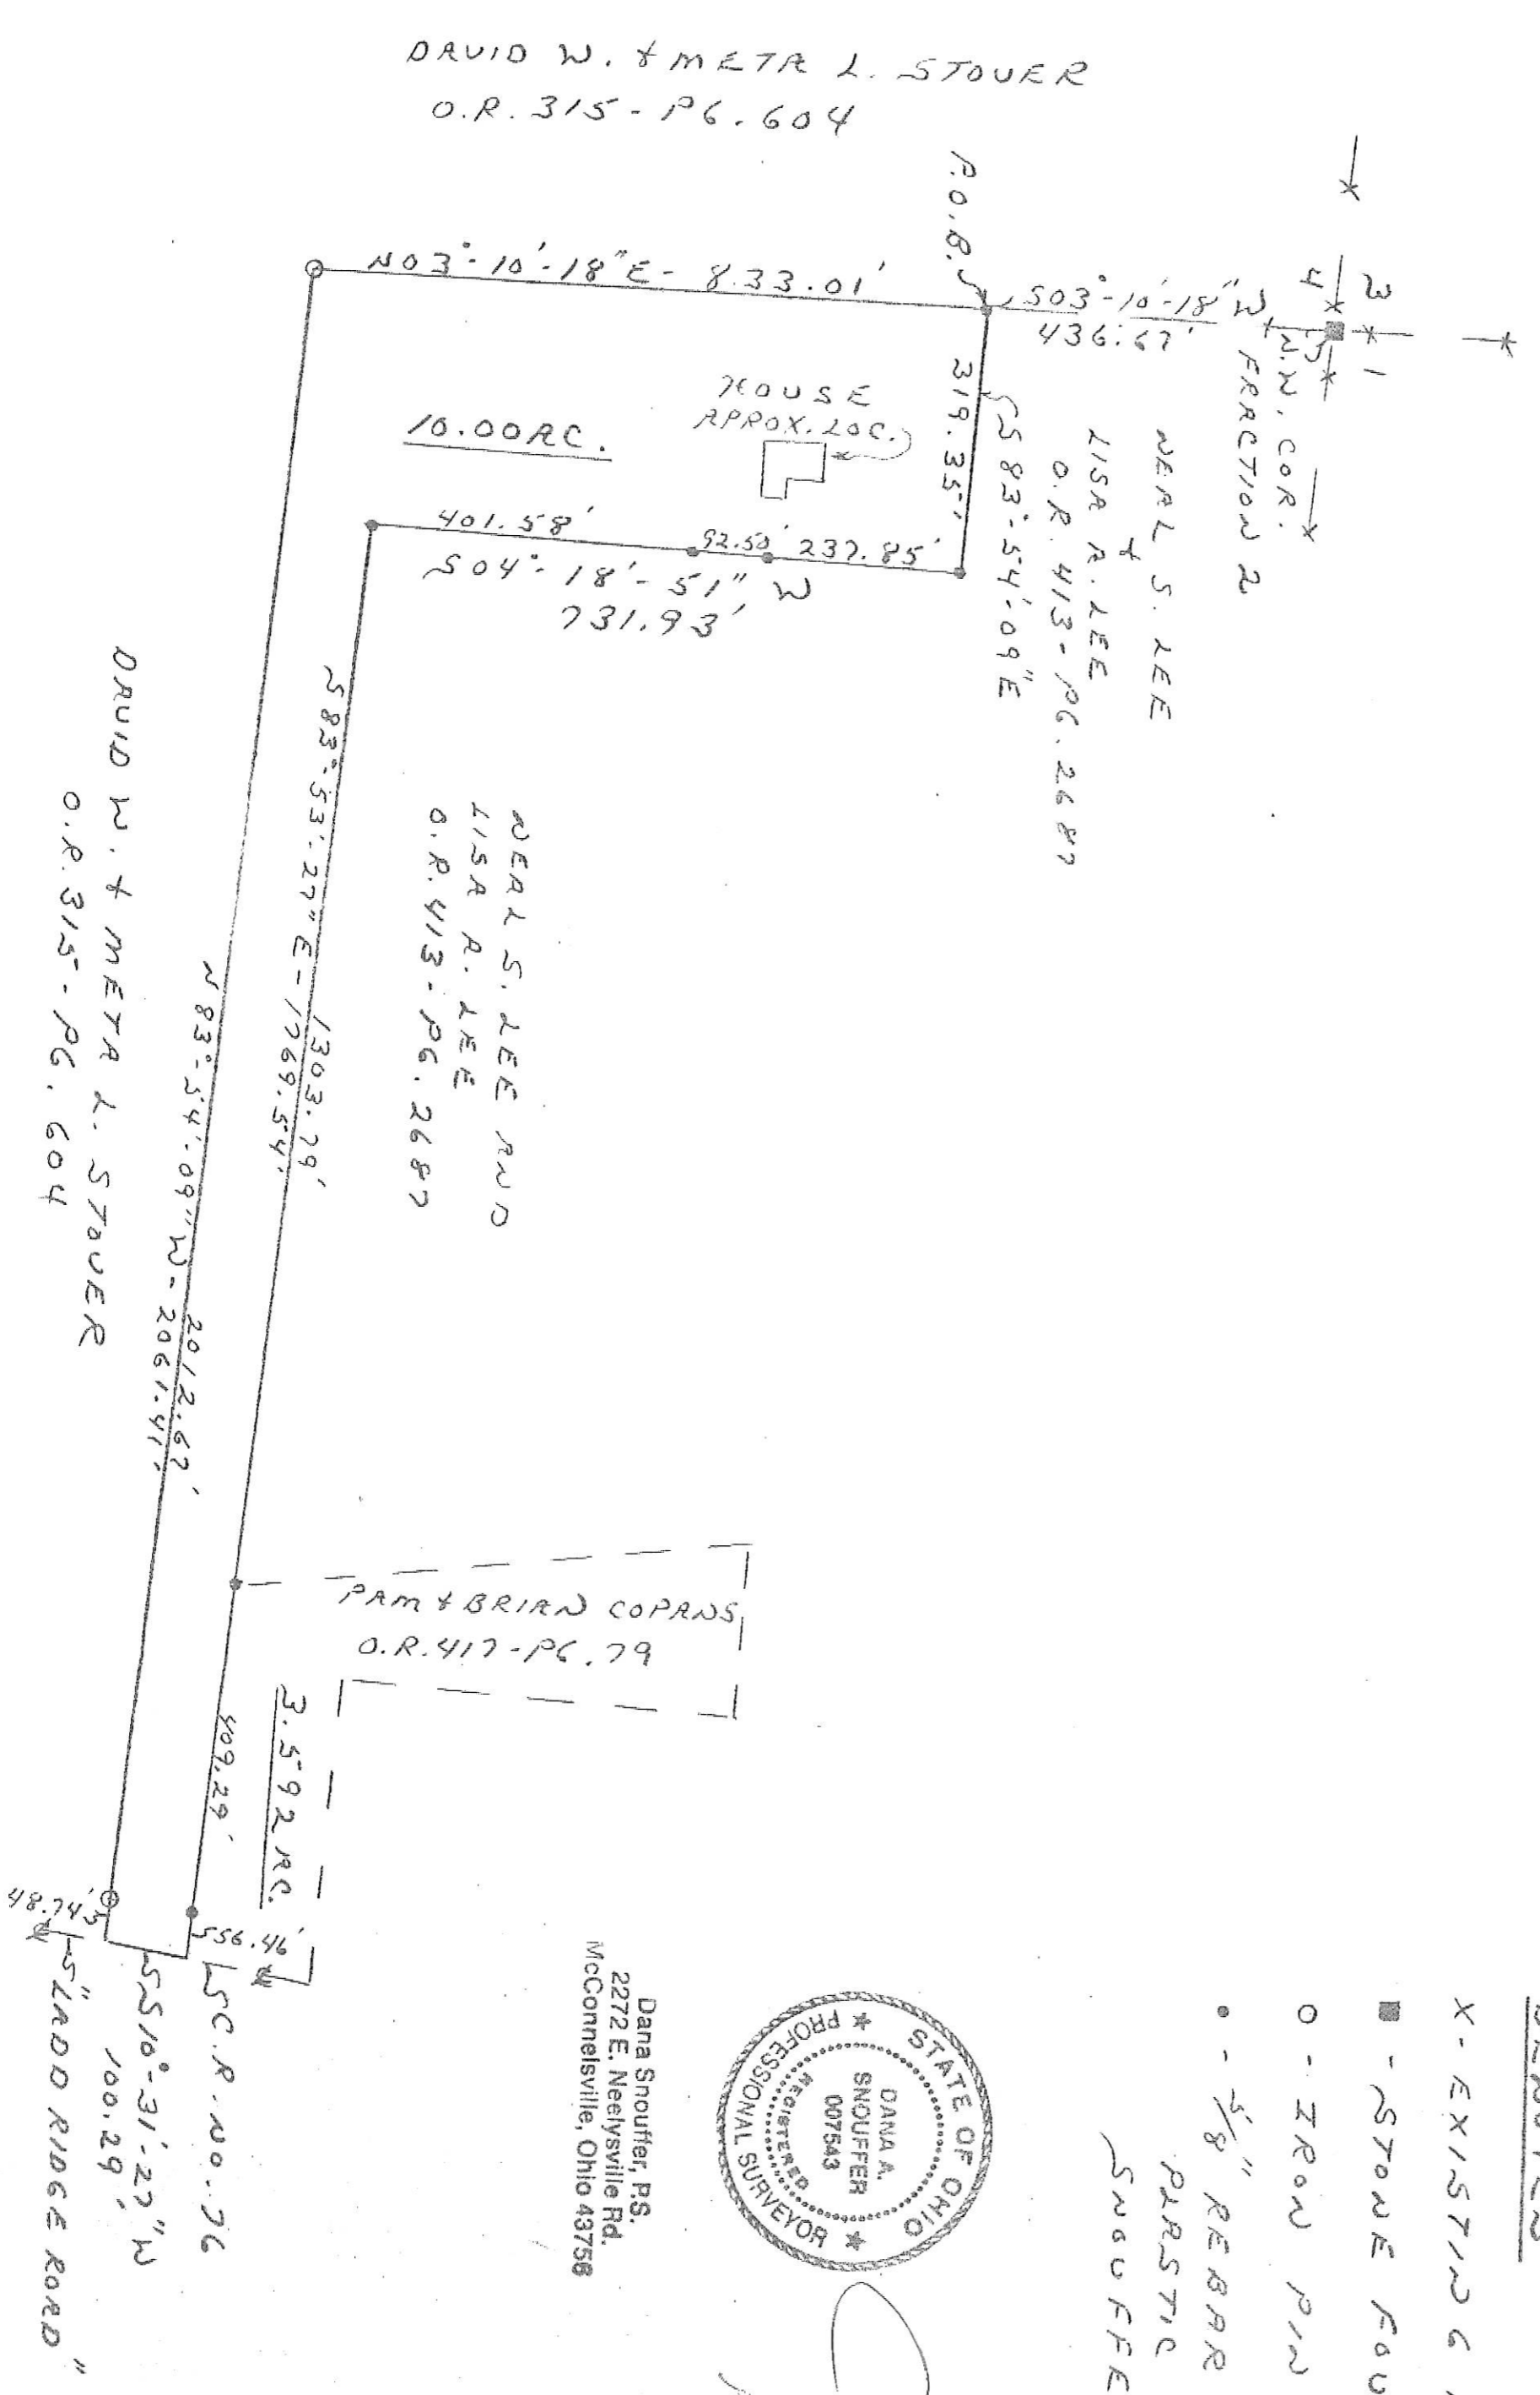 DAVID W. & META L. STOVER
O.R. 315 - PG. 604
P.O.B.
N03°-10'-18"E - 833.01'
S03°-10'-18"W
436.67'
3
4
1
N.W. COR.
FRACTION 2
NEAL S. LEE
&
LISA A. LEE
O.R. 413 - PG. 2687
S83°-54'-09"E
319.35'
HOUSE
APPROX. LOC.
10.00AC.
401.58'
92.50'
237.85'
S04°-18'-51"W
731.93'
NEAL S. LEE AND
LISA A. LEE
O.R. 413 - PG. 2687
S83°-53'-27"E - 1769.54'
1303.79'
DAVID W. & META L. STOVER
O.R. 315 - PG. 604
N83°-54'-09"W - 2061.41'
2012.67'
PAM & BRIAN COPANS
O.R. 417 - PG. 79
3.592 AC.
409.29'
56.46'
48.74'
C.R. NO. 76
S10°-31'-27"W
100.29'
"LADD RIDGE ROAD"
Dana Snouffer, P.S.
2272 E. Neelysville Rd.
McConnelsville, Ohio 43756
STATE OF OHIO
DANA A.
SNOUFFER
007543
REGISTERED
PROFESSIONAL SURVEYOR
X - EXISTING
■ - STONE FOU
O - IRON PIN
● - 5/8" REBAR
PLASTIC
SNOUFFE